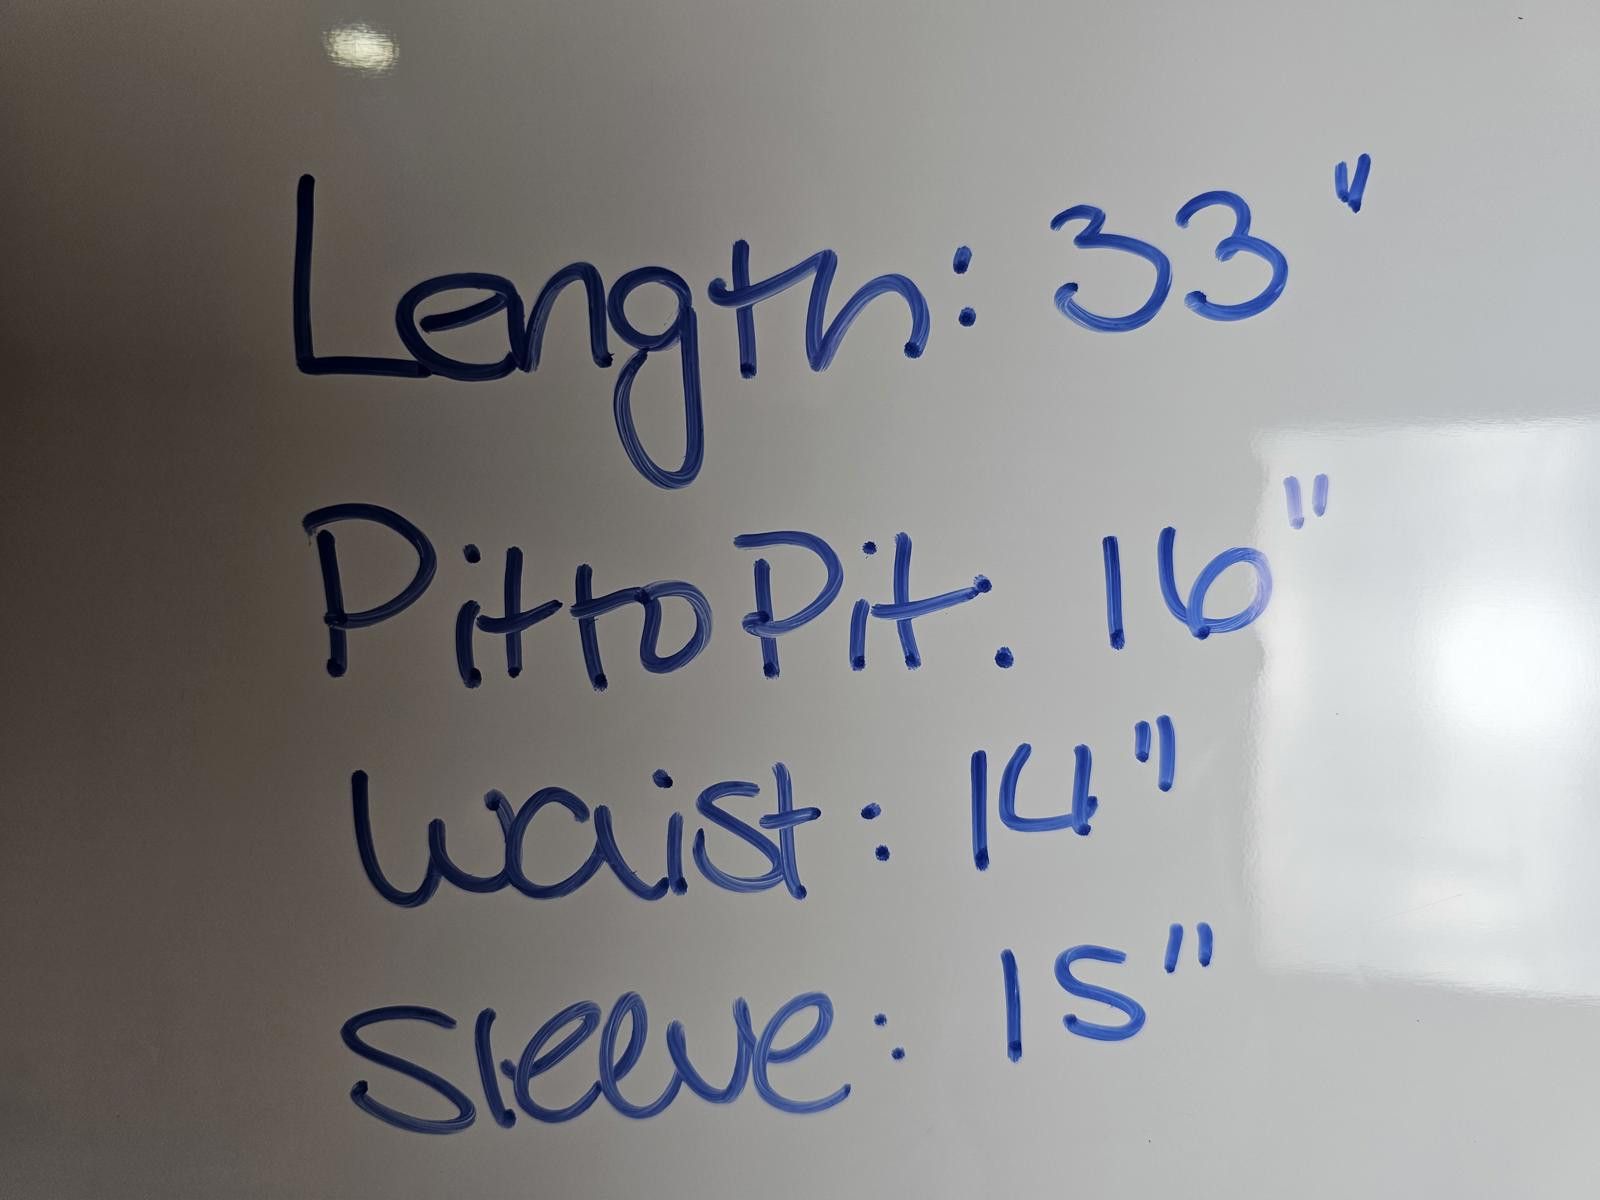 Length: 33"
Pit to Pit: 16"
Waist: 14"
Sleeve: 15"